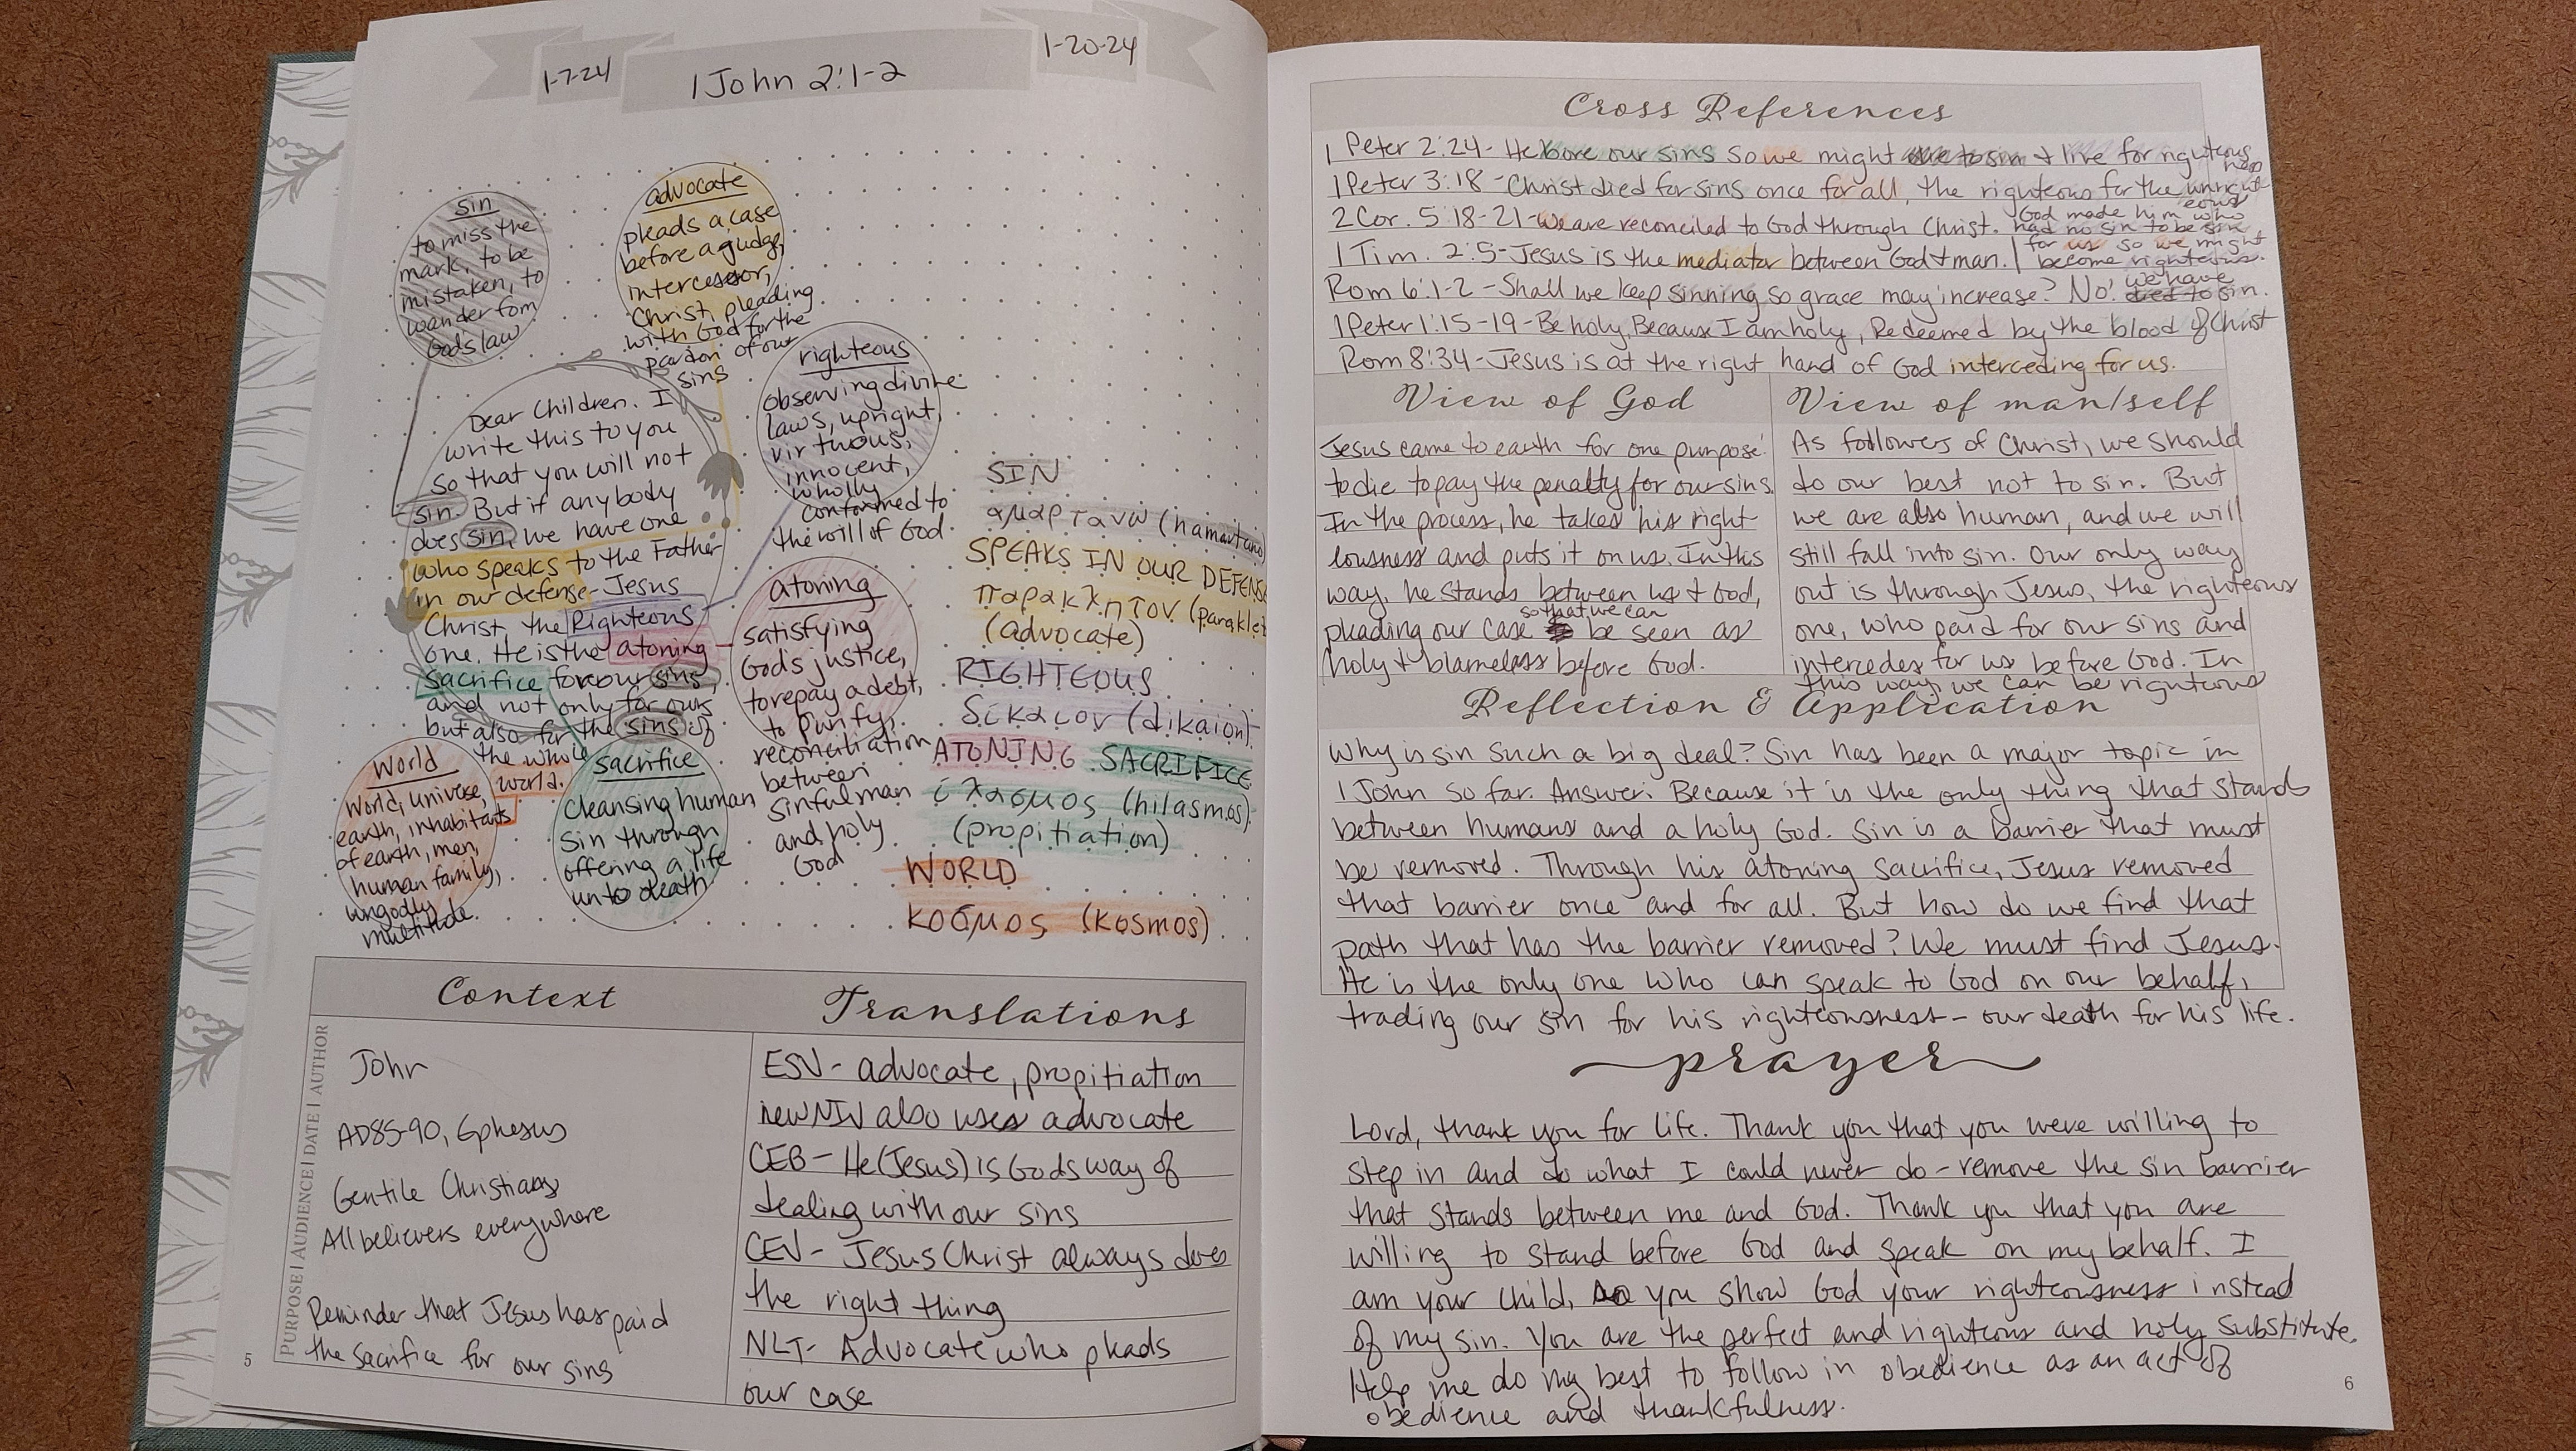 1-7-24
1 John 2:1-2
1-20-24
sin
to miss the
mark, to be
mistaken, to
wander from
God's law
advocate
pleads a case
before a judge,
intercessor,
Christ pleading
with God for the
pardon of our
sins
righteous
observing divine
laws, upright,
virtuous,
innocent,
wholly
conformed to
the will of God
Dear Children. I
write this to you
so that you will not
sin. But if anybody
does sin, we have one
who speaks to the Father
in our defense-Jesus
Christ, the Righteous
one. He is the atoning
sacrifice for our sins,
and not only for ours
but also for the sins of
the whole
world.
atoning
satisfying
God's justice,
to repay a debt,
to purify,
reconciliation
between
sinful man
and holy
God
World
World, universe,
earth, inhabitants
of earth, men,
human family,
ungodly
multitude.
sacrifice
cleansing human
sin through
offering a life
unto death
SIN
αμαρτανω (hamartano)
SPEAKS IN OUR DEFENSE
παρακλητον
(advocate)
RIGHTEOUS
δικαιον (dikaion)
ATONING SACRIFICE
ιλασμος (hilasmos)
(propitiation)
WORLD
κοσμος (kosmos)
Context
PURPOSE | AUDIENCE | DATE | AUTHOR
John
AD85-90, Ephesus
Gentile Christians
All believers everywhere
Reminder that Jesus has paid
the sacrifice for our sins
5
Translations
ESV- advocate, propitiation
new NIV also uses advocate
CEB- He (Jesus) is Gods way of
dealing with our sins
CEV- Jesus Christ always does
the right thing
NLT- Advocate who pleads
our case
Cross References
1 Peter 2:24- He bore our sins so we might die to sin + live for righteousness
1 Peter 3:18 - Christ died for sins once for all, the righteous for the unrighteous
2 Cor. 5:18-21-We are reconciled to God through Christ. God made him who
had no sin to be sin
for us so we might
become righteous.
1 Tim. 2:5-Jesus is the mediator between God + man.
Rom 6:1-2 - Shall we keep sinning so grace may increase? No! we have
died to sin.
1 Peter 1:15-19-Be holy, Because I am holy, Redeemed by the blood of Christ
Rom 8:34-Jesus is at the right hand of God interceding for us.
View of God
Jesus came to earth for one purpose:
to die to pay the penalty for our sins.
In the process, he takes his right
eousness and puts it on us. In this
way, he stands between us + God,
pleading our case so that we can be seen as
holy + blameless before God.
View of man/self
As followers of Christ, we should
do our best not to sin. But
we are also human, and we will
still fall into sin. Our only way
out is through Jesus, the righteous
one, who paid for our sins and
intercedes for us before God. In
this way, we can be righteous
Reflection & Application
Why is sin such a big deal? Sin has been a major topic in
1 John so far. Answer: Because it is the only thing that stands
between humans and a holy God. Sin is a barrier that must
be removed. Through his atoning sacrifice, Jesus removed
that barrier once and for all. But how do we find that
path that has the barrier removed? We must find Jesus.
He is the only one who can speak to God on our behalf,
trading our sin for his righteousness - our death for his life.
prayer
Lord, thank you for life. Thank you that you were willing to
step in and do what I could never do - remove the sin barrier
that stands between me and God. Thank you that you are
willing to stand before God and speak on my behalf. I
am your child, so you show God your righteousness instead
of my sin. You are the perfect and righteous and holy substitute.
Help me do my best to follow in obedience as an act of
obedience and thankfulness.
6